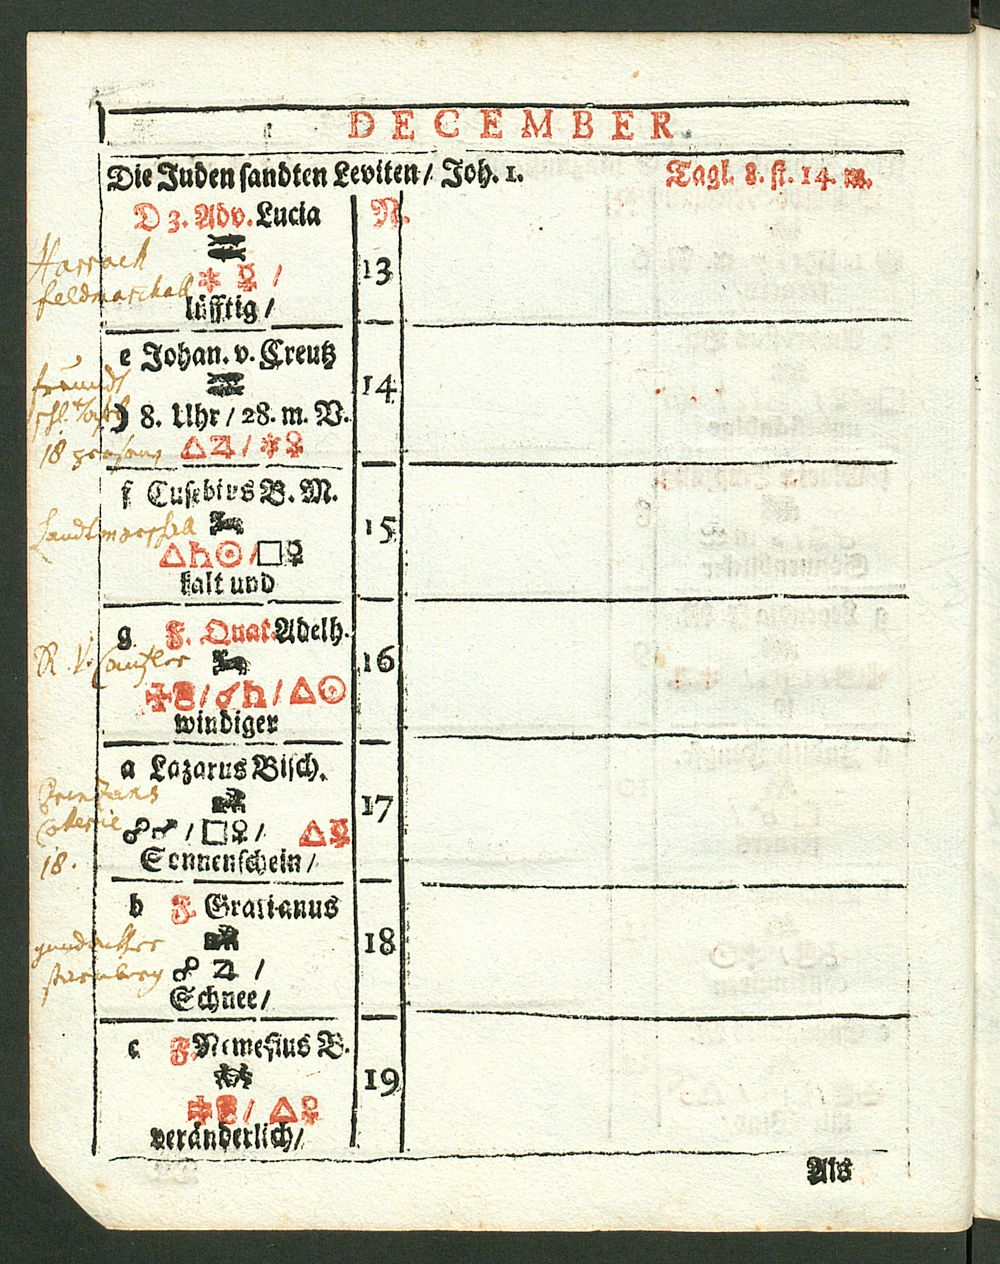 DECEMBER
Die Juden sandten Leviten / Joh. 1. Tagl. 8. st. 14. m.
D 3. Adv. Lucia N.
Harrach
♓
13
feldmarschall
⚹ ☿ /
lüfftig /
e Johan. v. Creutz
♓
14
freundt
☽ 8. Uhr / 28. m. V.
18
△♃ / ⚹♀
f Eusebius B. M.
♈
15
Landtmarschall
△♄☉ / □♀
kalt und
g F. Quat. Adelh.
♈
16
R. V. Cantzler
/ ☌♄ / △☉
windiger
a Lazarus Bisch.
♉
17
☍♂ / □♀ / △☿
Coterie
Sonnenschein /
18.
b F. Gratianus
♉
18
gundacker
☍ ♃ /
starnberg
Schnee /
c F. Nemesius B.
♊
19
/ △♀
veränderlich /
Als